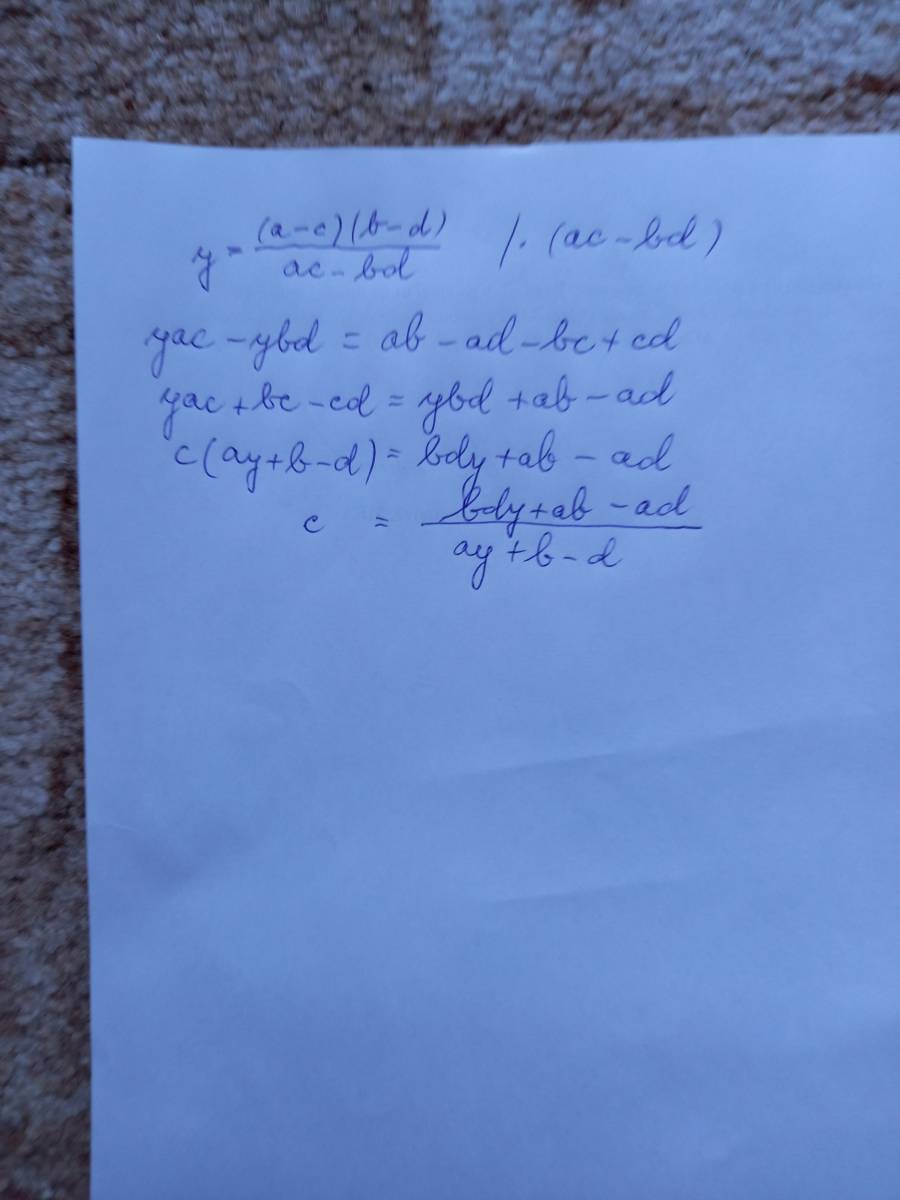 y = (a-c)(b-d) / ac - bd  /· (ac - bd)
yac - ybd = ab - ad - bc + cd
yac + bc - cd = ybd + ab - ad
c(ay + b - d) = bdy + ab - ad
c = bdy + ab - ad / ay + b - d